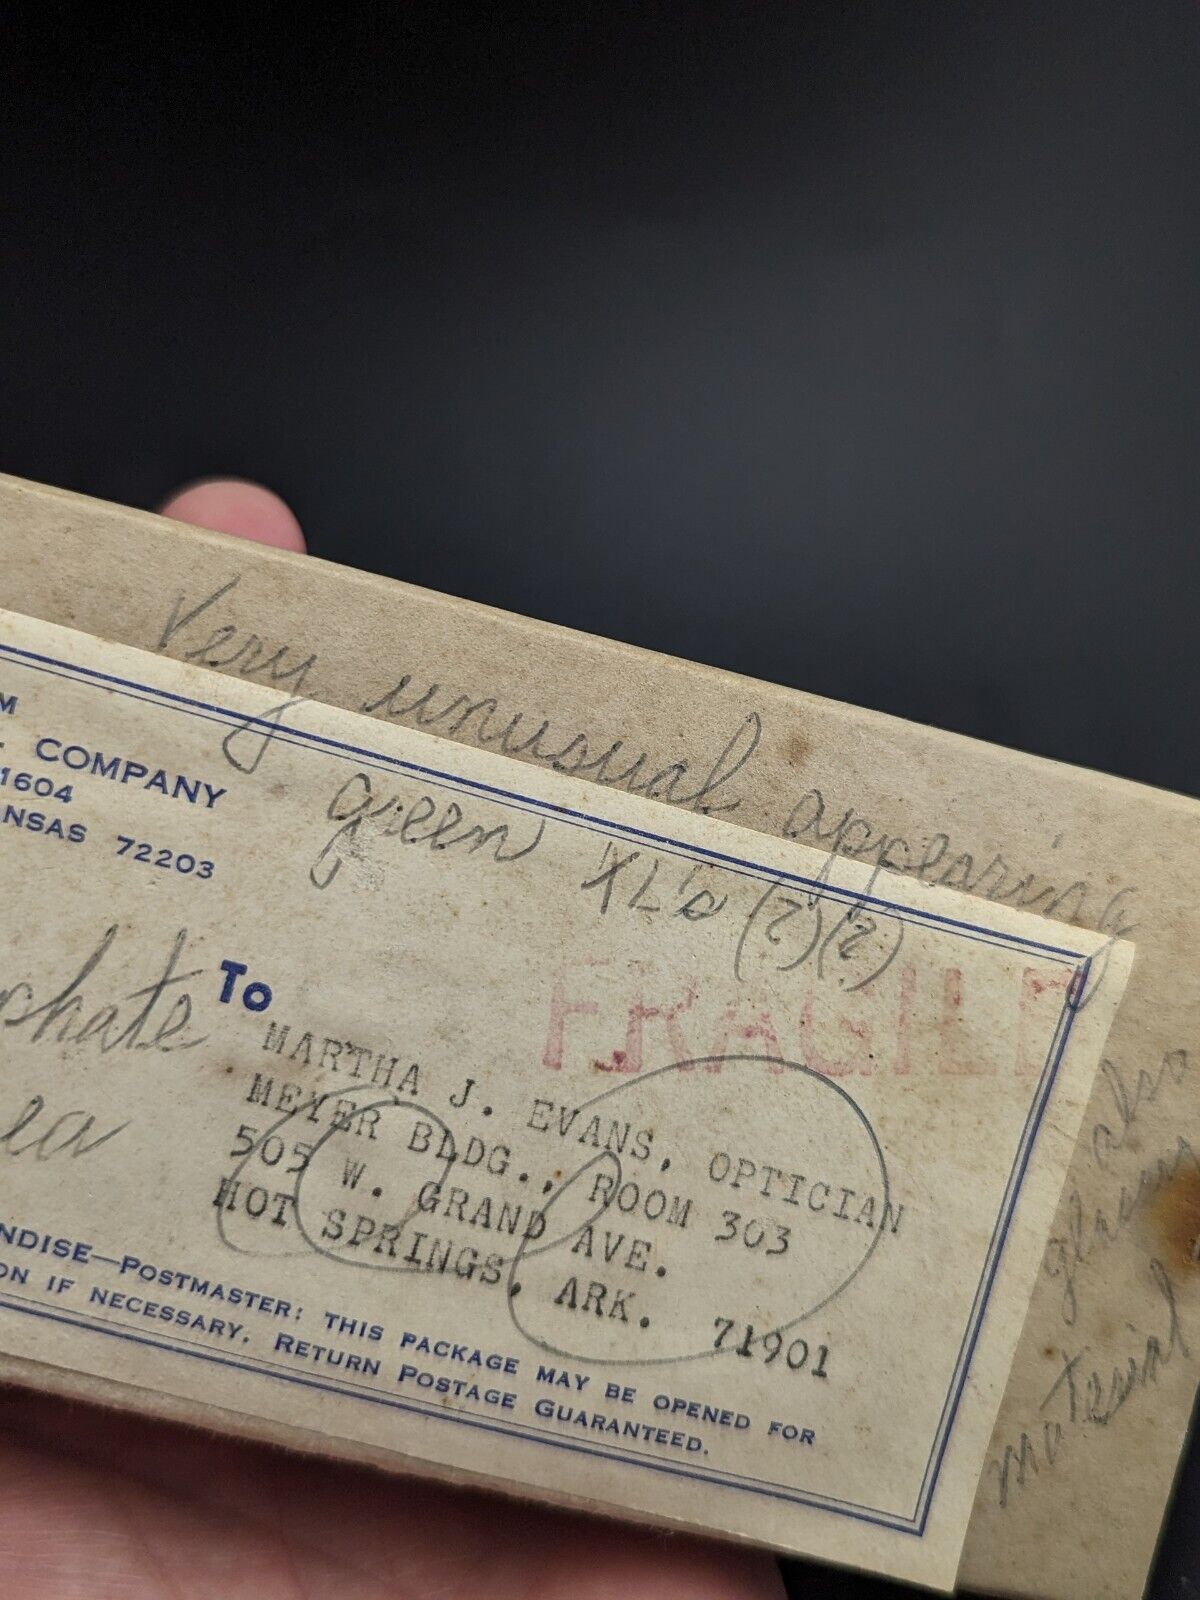 Very unusual appearing
green XL's (?)(?)
M
COMPANY
1604
NSAS 72203
FRAGILE
phate
ea
To
MARTHA J. EVANS, OPTICIAN
MEYER BLDG., ROOM 303
505 W. GRAND AVE.
HOT SPRINGS, ARK. 71901
NDISE—POSTMASTER: THIS PACKAGE MAY BE OPENED FOR
ON IF NECESSARY. RETURN POSTAGE GUARANTEED.
also
material